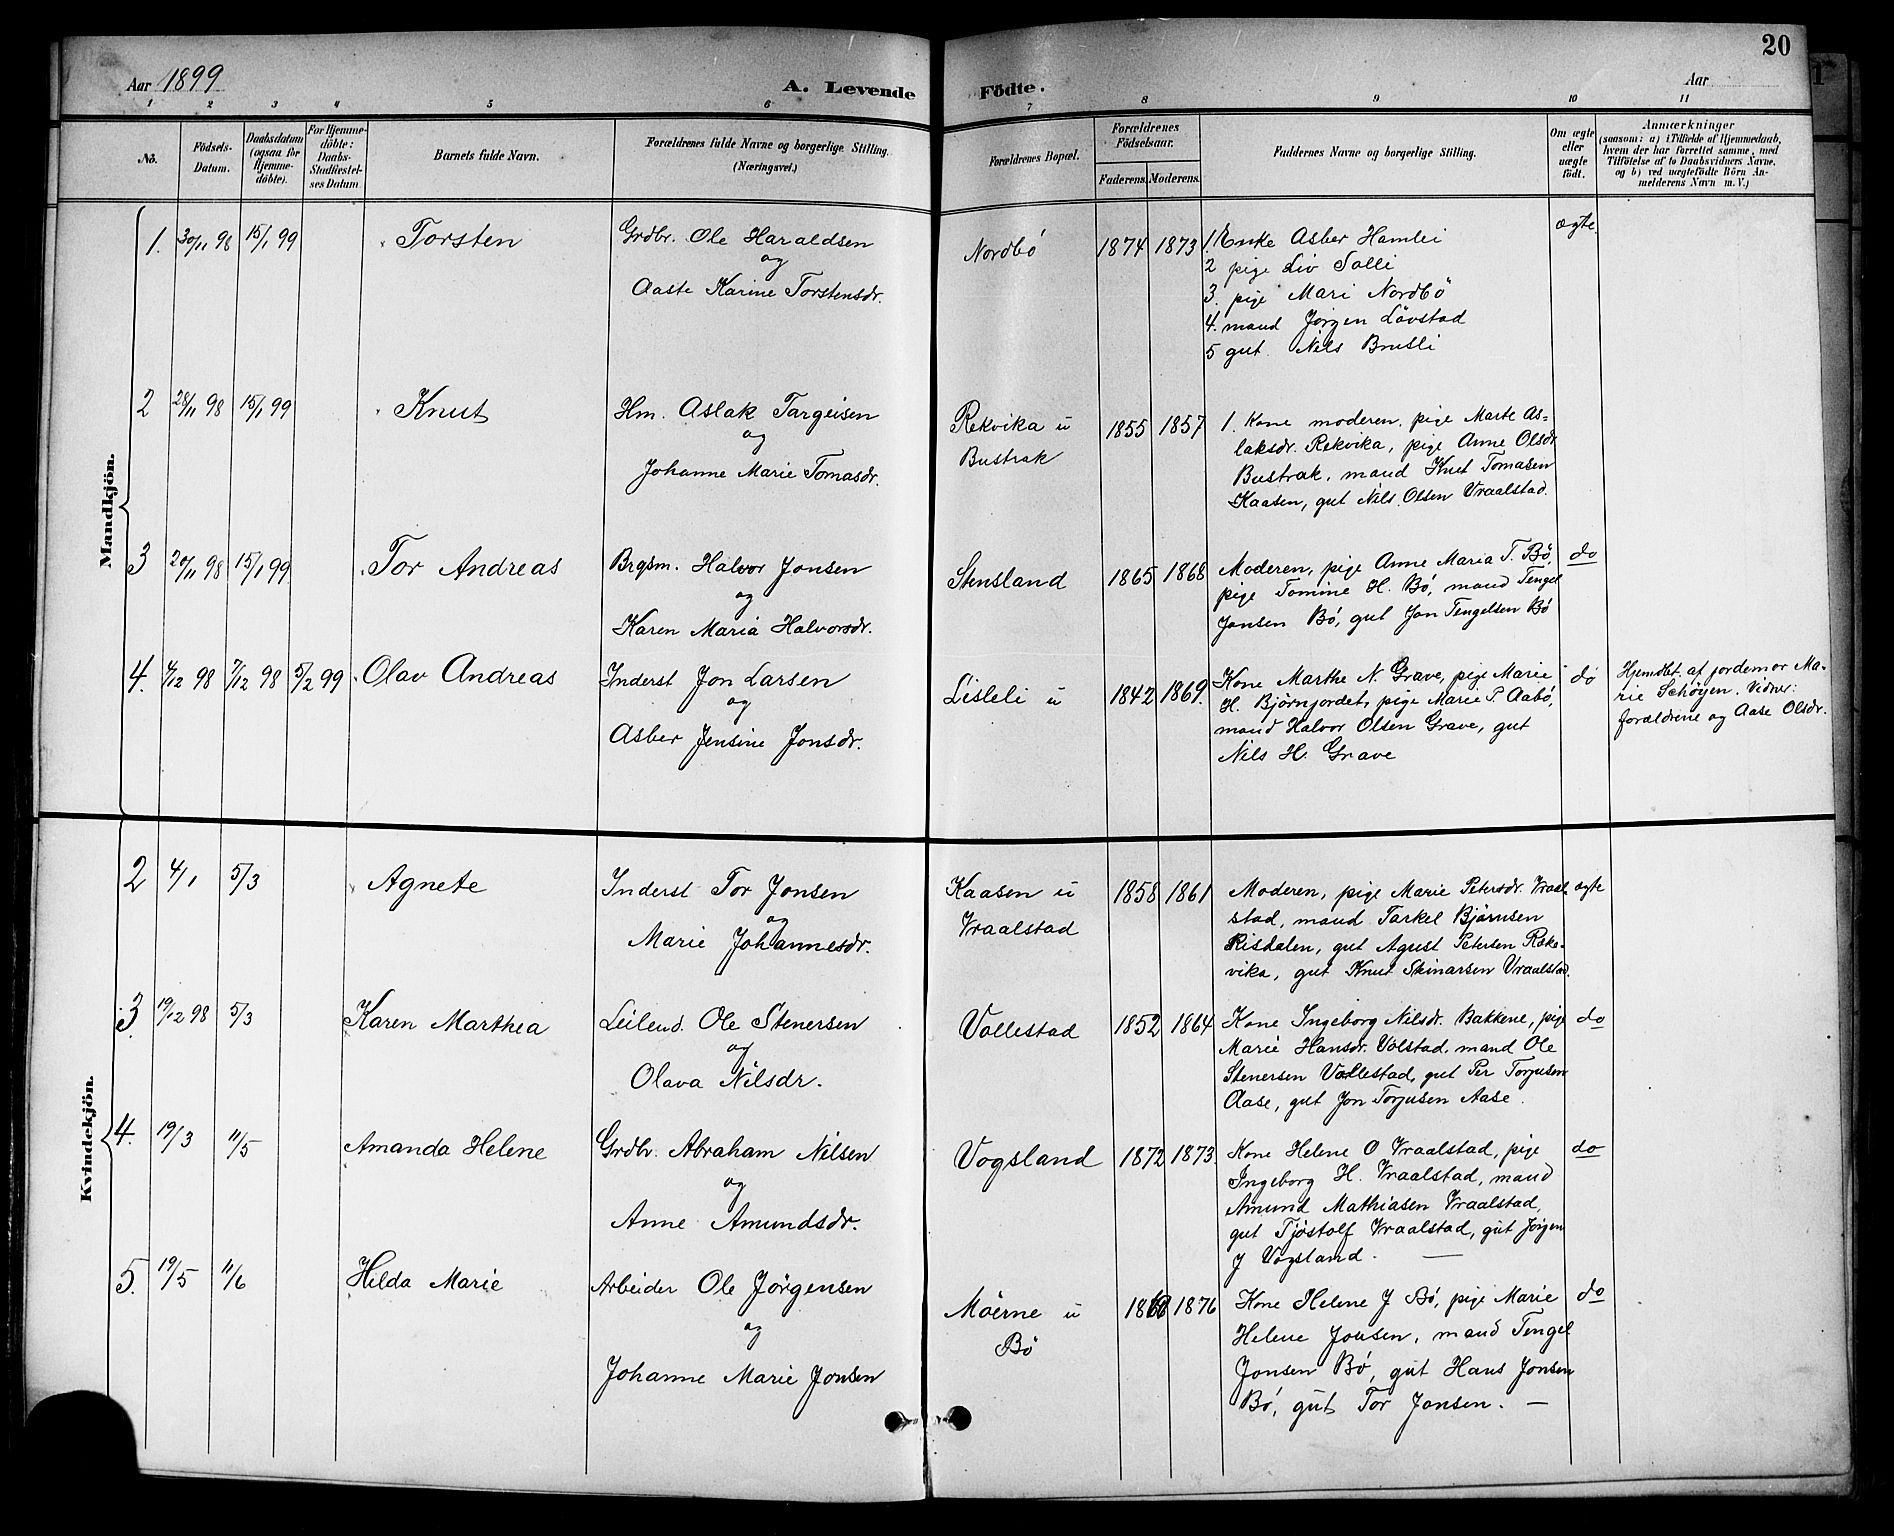 20
Aar 1899
A. Levende Födte.
Aar
1 2 3 4 5 6 7 8 9 10 11
No.
Födsels-
Datum.
Daabsdatum
(ogsaa for
Hjemme-
döbte).
For Hjemme-
döbte:
Daabs-
Stadfæstel-
ses Datum.
Barnets fulde Navn.
Forældrenes fulde Navne og borgerlige Stilling.
(Næringsvei.)
Forældrenes Bopæl.
Forældrenes
Födselsaar.
Faderens. Moderens.
Faddernes Navne og borgerlige Stilling.
Om ægte
eller
uægte
født.
Anmærkninger
(saasom: a) i Tilfælde af Hjemmedaab,
hvem der har forrettet samme, med
Tilföielse af to Daabsvidners Navne,
og b) ved uægtefödte Börn An-
melderens Navn m. V.)
Mandkjön.
1. 30/11 98 15/1 99 Torsten
Grdbr. Ole Haraldsen
og
Aaste Karine Torstensdr.
Nordbö
1874 1873
1. Enke Asber Hamlei
2 pige Liv Solli
3. pige Mari Nordbö
4. mand Jörgen Lövstad
5 gut. Nils Brusli
ægte.
2 28/11 98 15/1 99 Knut
Hm. Aslak Targeisen
og
Johanne Marie Tomasdr.
Rekvika u
Bustrak
1855 1857
1. Kone moderen, pige Marte As-
laksdr. Rekvika, pige Anne Olsdr.
Bustrak, mand Knut Tomasen
Kaasen, gut Nils Olsen Vraalstad.
3 /11 98 15/1 99 Tor Andreas
Brgsm. Halvor Jonsen
og
Karen Maria Halvorsdr.
Stensland
1865 1868
Moderen, pige Anne Maria T. Bö,
pige Tomine H. Bö, mand Tengel
Jonsen Bö, gut Jon Tengelsen Bö
do
4. 4/12 98 7/12 98 5/2 99 Olav Andreas
Inderst Jon Larsen
og
Asber Jensine Jonsdr.
Lisleli u
1842 1869.
Kone Marthe N. Grave, pige Marie
H. Björnjordet, pige Marie P. Aabö,
mand Halvor Olsen Grave, gut
Nils H. Grave
do
Hjemdbt. af jordemor Ma-
rie Schöyen. Vidner:
forældrene og Aase Olsdr.
Kvindekjön.
2 4/1 5/3 Agnete
Inderst Tor Jonsen
og
Marie Johannesdr.
Kaasen u
Vraalstad
1858 1861
Moderen, pige Marie Petersdr. Vraal
stad, mand Tarkel Björnsen
Risdalen, gut Agust Petersen Ræk-
vika, gut Knut Skinarsen Vraalstad.
ægte
3. 19/12 98 5/3 Karen Marthea
Leilend. Ole Stenersen
og
Olava Nilsdr.
Vollestad
1852 1864
Kone Ingeborg Nilsdr. Bakkene, pige
Marie Hansdr. Volstad, mand Ole
Stenersen Vollestad, gut Per Torjusen
Aase, gut Jon Torjusen Aase.
do
4. 19/3 11/5 Amanda Helene
Grdbr. Abraham Nilsen
og
Anne Amundsdr.
Vogsland
1872 1873.
Kone Helene O Vraalstad, pige
Ingeborg H. Vraalstad, mand
Amund Mathiasen Vraalstad,
gut Tjöstolf Vraalstad, gut Jörgen
J Vogsland. —
do
5. 19/5 11/6 Hilda Marie
Arbeider Ole Jörgensen
og
Johanne Marie Jonsen
Möerne u
Bö
1876
Kone Helene J Bö, pige Marie
Helene Jonsen, mand Tengel
Jonsen Bö, gut Hans Jonsen
Bö, gut Tor Jonsen. —
do